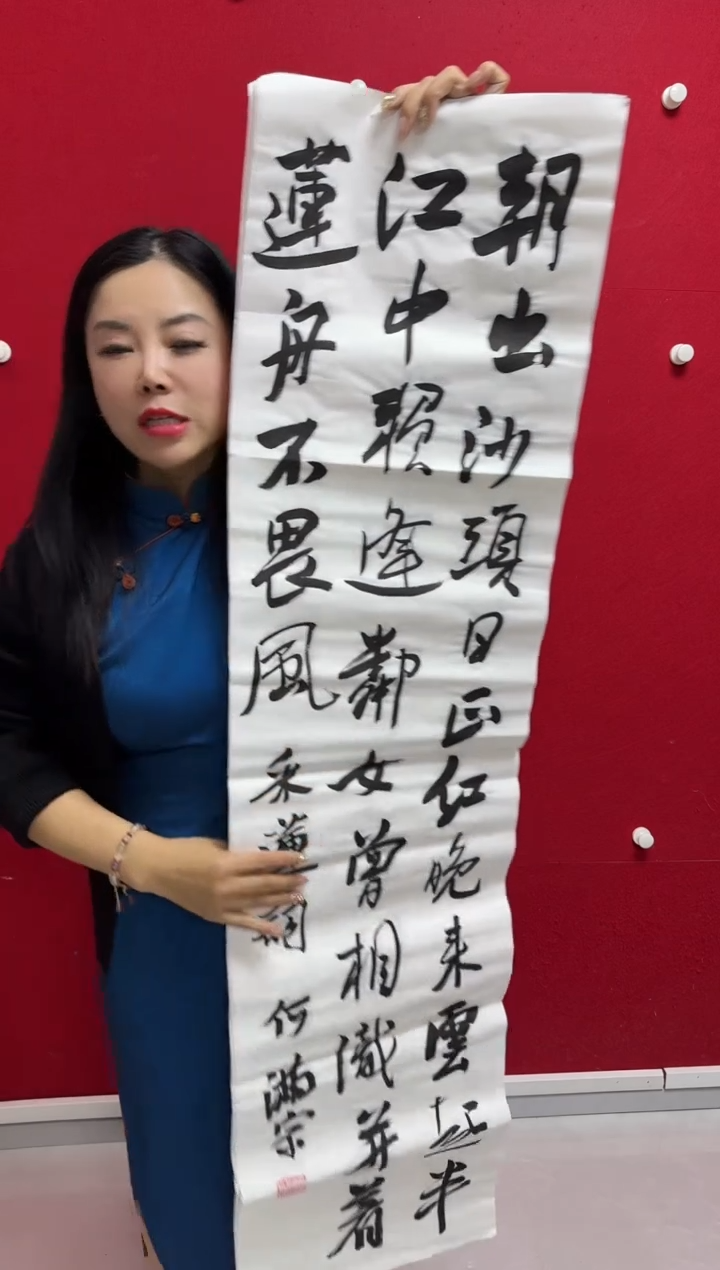 朝出沙頭日正紅晚来雲起半
江中賴逢鄰女曾相識并着
蓮舟不畏風
采蓮詞
何滿宗